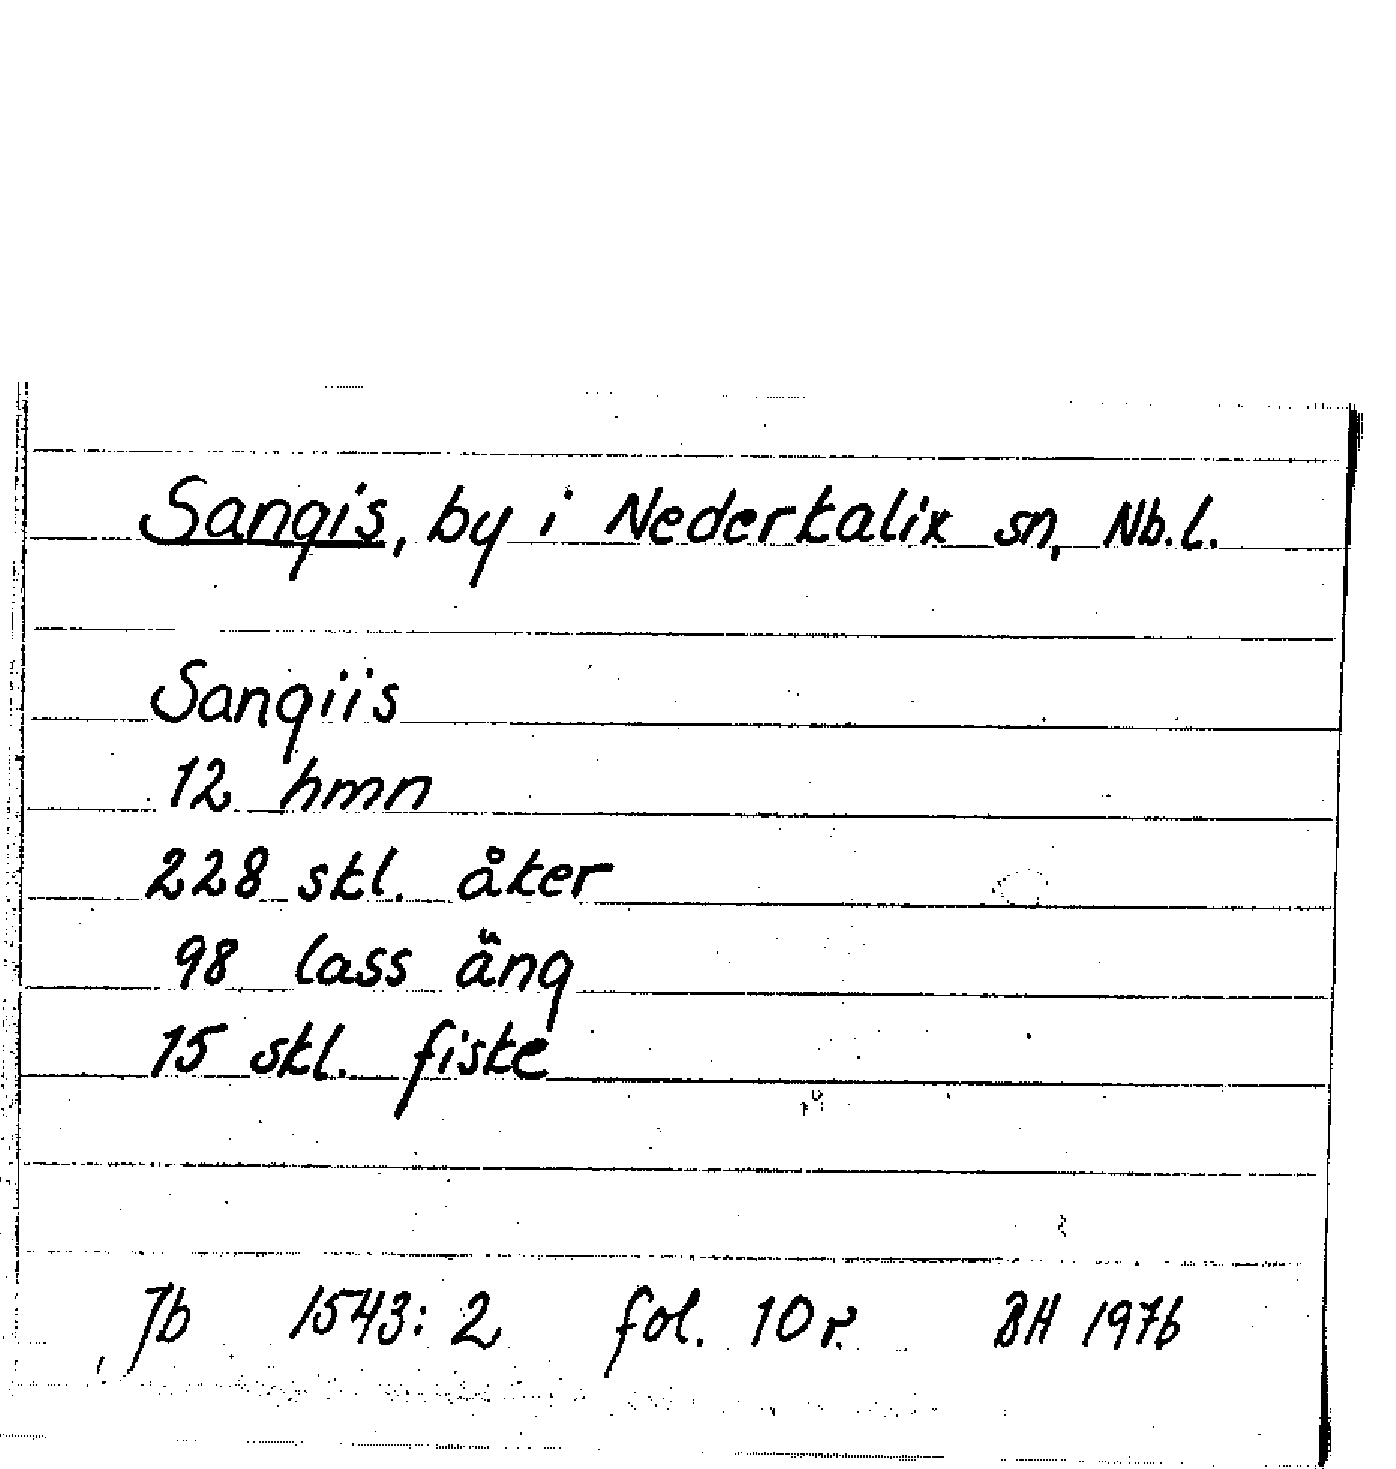 Sangis, by i Nederkalix sn, Nb.l.
Sangiis
12 hmn
228 skl. åker
98 lass äng
15 skl. fiske
Jb 1543:2 fol. 10 r. BH 1976